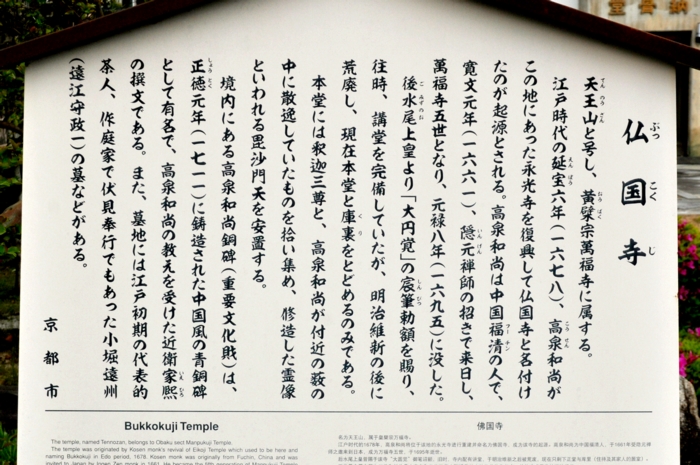 仏国寺
天王山と号し、黄檗宗萬福寺に属する。
江戸時代の延宝六年(一六七八)、高泉和尚が
この地にあった永光寺を復興して仏国寺と名付け
たのが起源とされる。高泉和尚は中国福清の人で、
寛文元年(一六六一)、隠元禅師の招きで来日し、
萬福寺五世となり、元禄八年(一六九五)に没した。
後水尾上皇より「大円覚」の宸筆勅額を賜り、
往時、講堂を完備していたが、明治維新の後に
荒廃し、現在本堂と庫裏をとどめるのみである。
本堂には釈迦三尊と、高泉和尚が付近の薮の
中に散逸していたものを拾い集め、修造した霊像
といわれる毘沙門天を安置する。
境内にある高泉和尚銅碑(重要文化財)は、
正徳元年(一七一一)に鋳造された中国風の青銅碑
として有名で、高泉和尚の教えを受けた近衛家熙
の撰文である。また、墓地には江戸初期の代表的
茶人、作庭家で伏見奉行でもあった小堀遠州
(遠江守政一)の墓などがある。
京都市
Bukkokuji Temple
The temple, named Tennozan, belongs to Obaku sect Manpukuji Temple.
The temple was originated by Kosen monk's revival of Eikoji Temple which used to be here and
naming Bukkokuji in Edo period, 1678. Kosen monk was originally from Fuchin, China and was
佛国寺